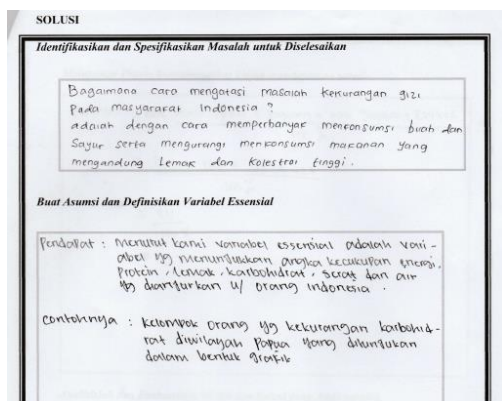 SOLUSI
Identifikasikan dan Spesifikasikan Masalah untuk Diselesaikan
Bagaimana cara mengatasi masalah kekurangan gizi
Pada masyarakat Indonesia ?
adalah dengan cara memperbanyak menkonsumsi buah dan
Sayur serta mengurangi menkonsumsi makanan yang
mengandung Lemak dan Kolestrol tinggi.
Buat Asumsi dan Definisikan Variabel Essensial
Pendapat : Menurut kami variabel essensial adalah vari-
abel yg menunjukkan angka kecukupan energi,
Protein, lemak, karbohidrat, serat dan air
yg dianjurkan u/ orang indonesia.
Contohnya : Kelompok orang yg kekurangan karbohid-
rat diwilayah Papua yang ditunjukan
dalam bentuk grafik